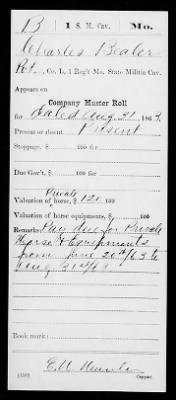 B | 1 S. M. Cav. | Mo.
Charles Bealer
Pvt., Co. L, 1 Reg't Mo. State Militia Cav.
Appears on
Company Muster Roll
for dated Aug 31, 1863.
Present or absent Present
Stoppage, $ 100 for
Due Gov't, $ 100 for
Private
Valuation of horse, $ 120 100
Valuation of horse equipments, $ 100
Remarks: Pay due for Private
Horse & Equipments
from June 20th/63 to
Aug 31st/63
Book mark:
E. W.
Copyist.